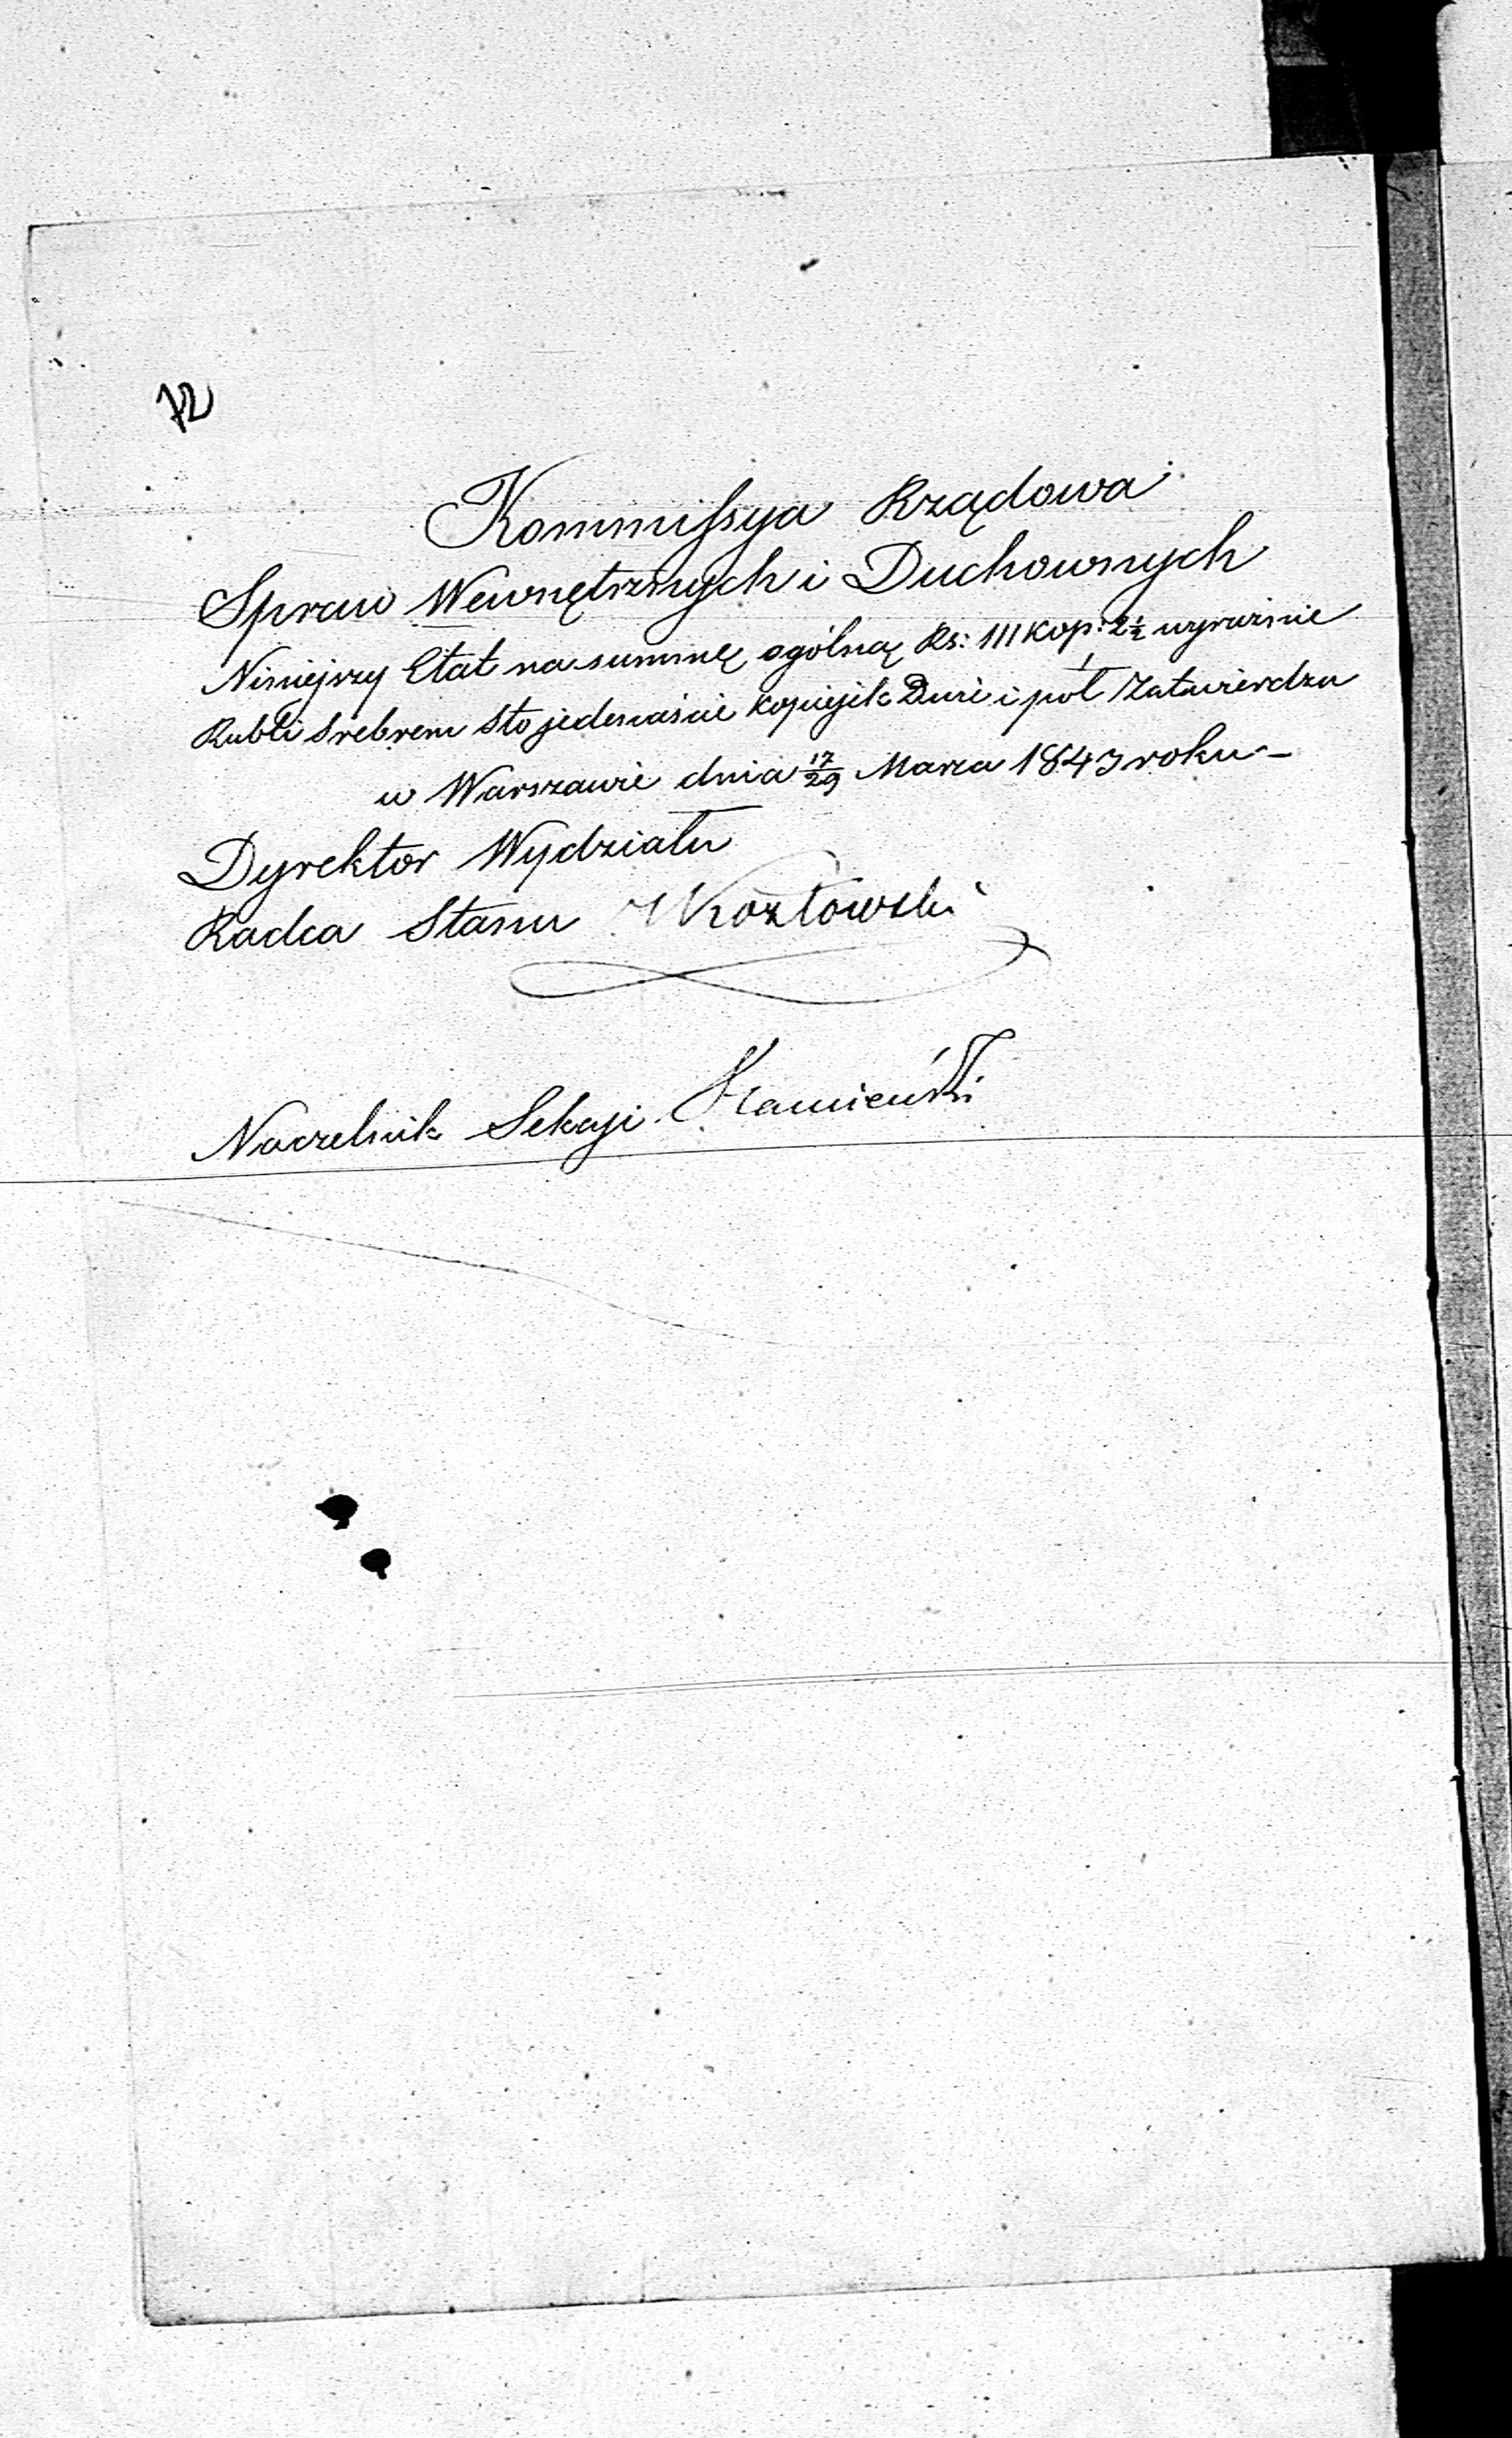 72
Kommissya Rządowa
Spraw Wewnętrznych i Duchownych
Niniejszy Etat na summę ogólną Rs: 111 kop: 2½ wyraźnie
Rubli Srebrem Sto jedenaście kopiejek Dwie i pół Zatwierdza
w Warszawie dnia 17/29 Marca 1843 roku –
Dyrektor Wydziału
Radca Stanu Kozłowski
Naczelnik Sekcyi Kamieński